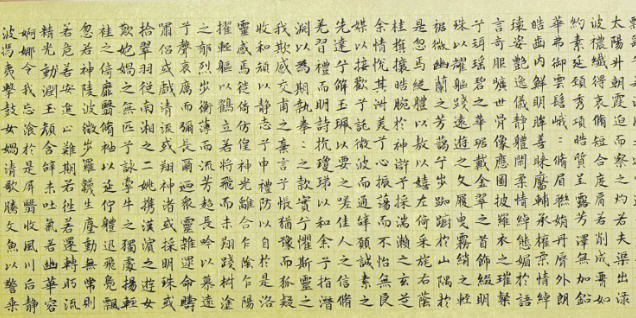 太陽升朝霞迫而察之灼若芙蕖出渌
波襛纖得衷脩短合度肩若削成腰如
約素延頸秀項皓質呈露芳澤無加鉛
華弗御雲髻峨峨脩眉聯娟丹脣外朗
皓齒內鮮明眸善睞靨輔承權
瓌姿艷逸儀靜體閑柔情綽態媚於語
言奇服曠世骨像應圖披羅衣之璀粲
兮珥瑤碧之華琚戴金翠之首飾綴明
珠以耀軀踐遠遊之文履曳霧綃之輕
裾微幽蘭之芳藹兮步踟躕於山隅於
是忽焉縱體以敖以嬉左倚采旄右蔭
桂旗攘皓腕於神滸兮採湍瀨之玄芝
余情悅其淑美兮心振蕩而不怡無良
媒以接歡兮託微波而通辭願誠素之
先達兮解玉珮以要之嗟佳人之信脩
羌習禮而明詩抗瓊珶以和余兮指潛
淵以為期執拳拳之款實兮懼斯靈之
我欺感交甫之棄言兮悵猶豫而狐疑
收和顏以靜志兮申禮防以自持於是洛
靈感焉徙倚彷徨神光離合乍陰乍陽
擢輕軀以鶴立若將飛而未翔踐椒塗
之郁烈步蘅薄而流芳超長吟以慕遠
兮聲哀厲而彌長爾迺眾靈雜遝命疇
嘯侶或戲清流或翔神渚或採明珠或
拾翠羽從南湘之二姚攜漢濱之遊女
歎炮媧之無匹兮詠牽牛之獨處揚輕
袿之倚靡翳脩袖以延佇體迅飛鳧飄
忽若神陵波微步羅韈生塵動無常則
若危若安進止難期若往若還轉眄流
精光潤玉顏含辭未吐氣若幽蘭華容
婀娜令我忘飡於是屏翳收風川后靜
波馮夷擊鼓女媧清歌騰文魚以警乘